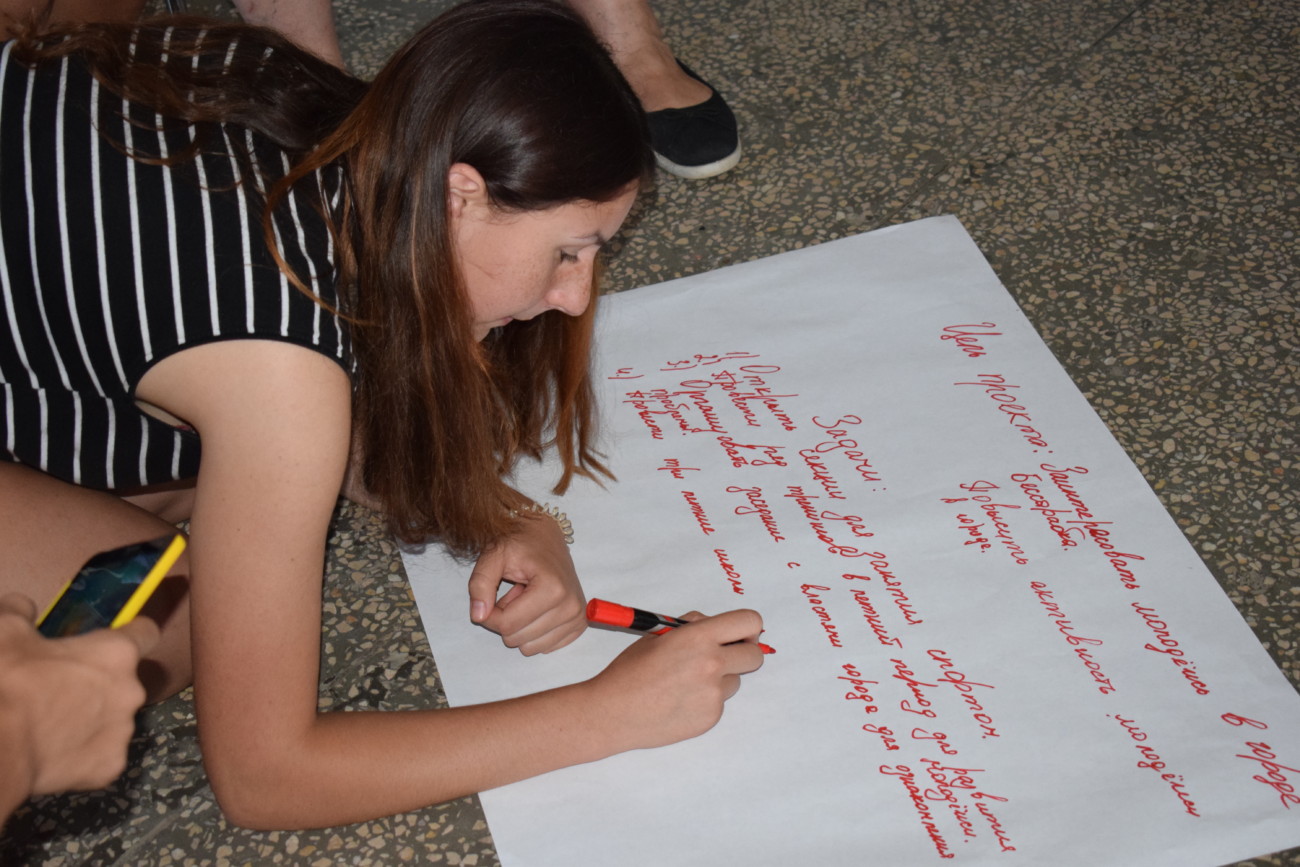 Цель проекта: Заинтересовать молодёжь в городе
Бессарабка.
Повысить активность молодёжи
в городе.
Задачи:
1) Открыть секции для занятия спортом.
2) Провести ряд тренингов в летний период для развития
молодёжи.
3) Организовать заседание с властями города для ознакомления
4) Провести три летние школы